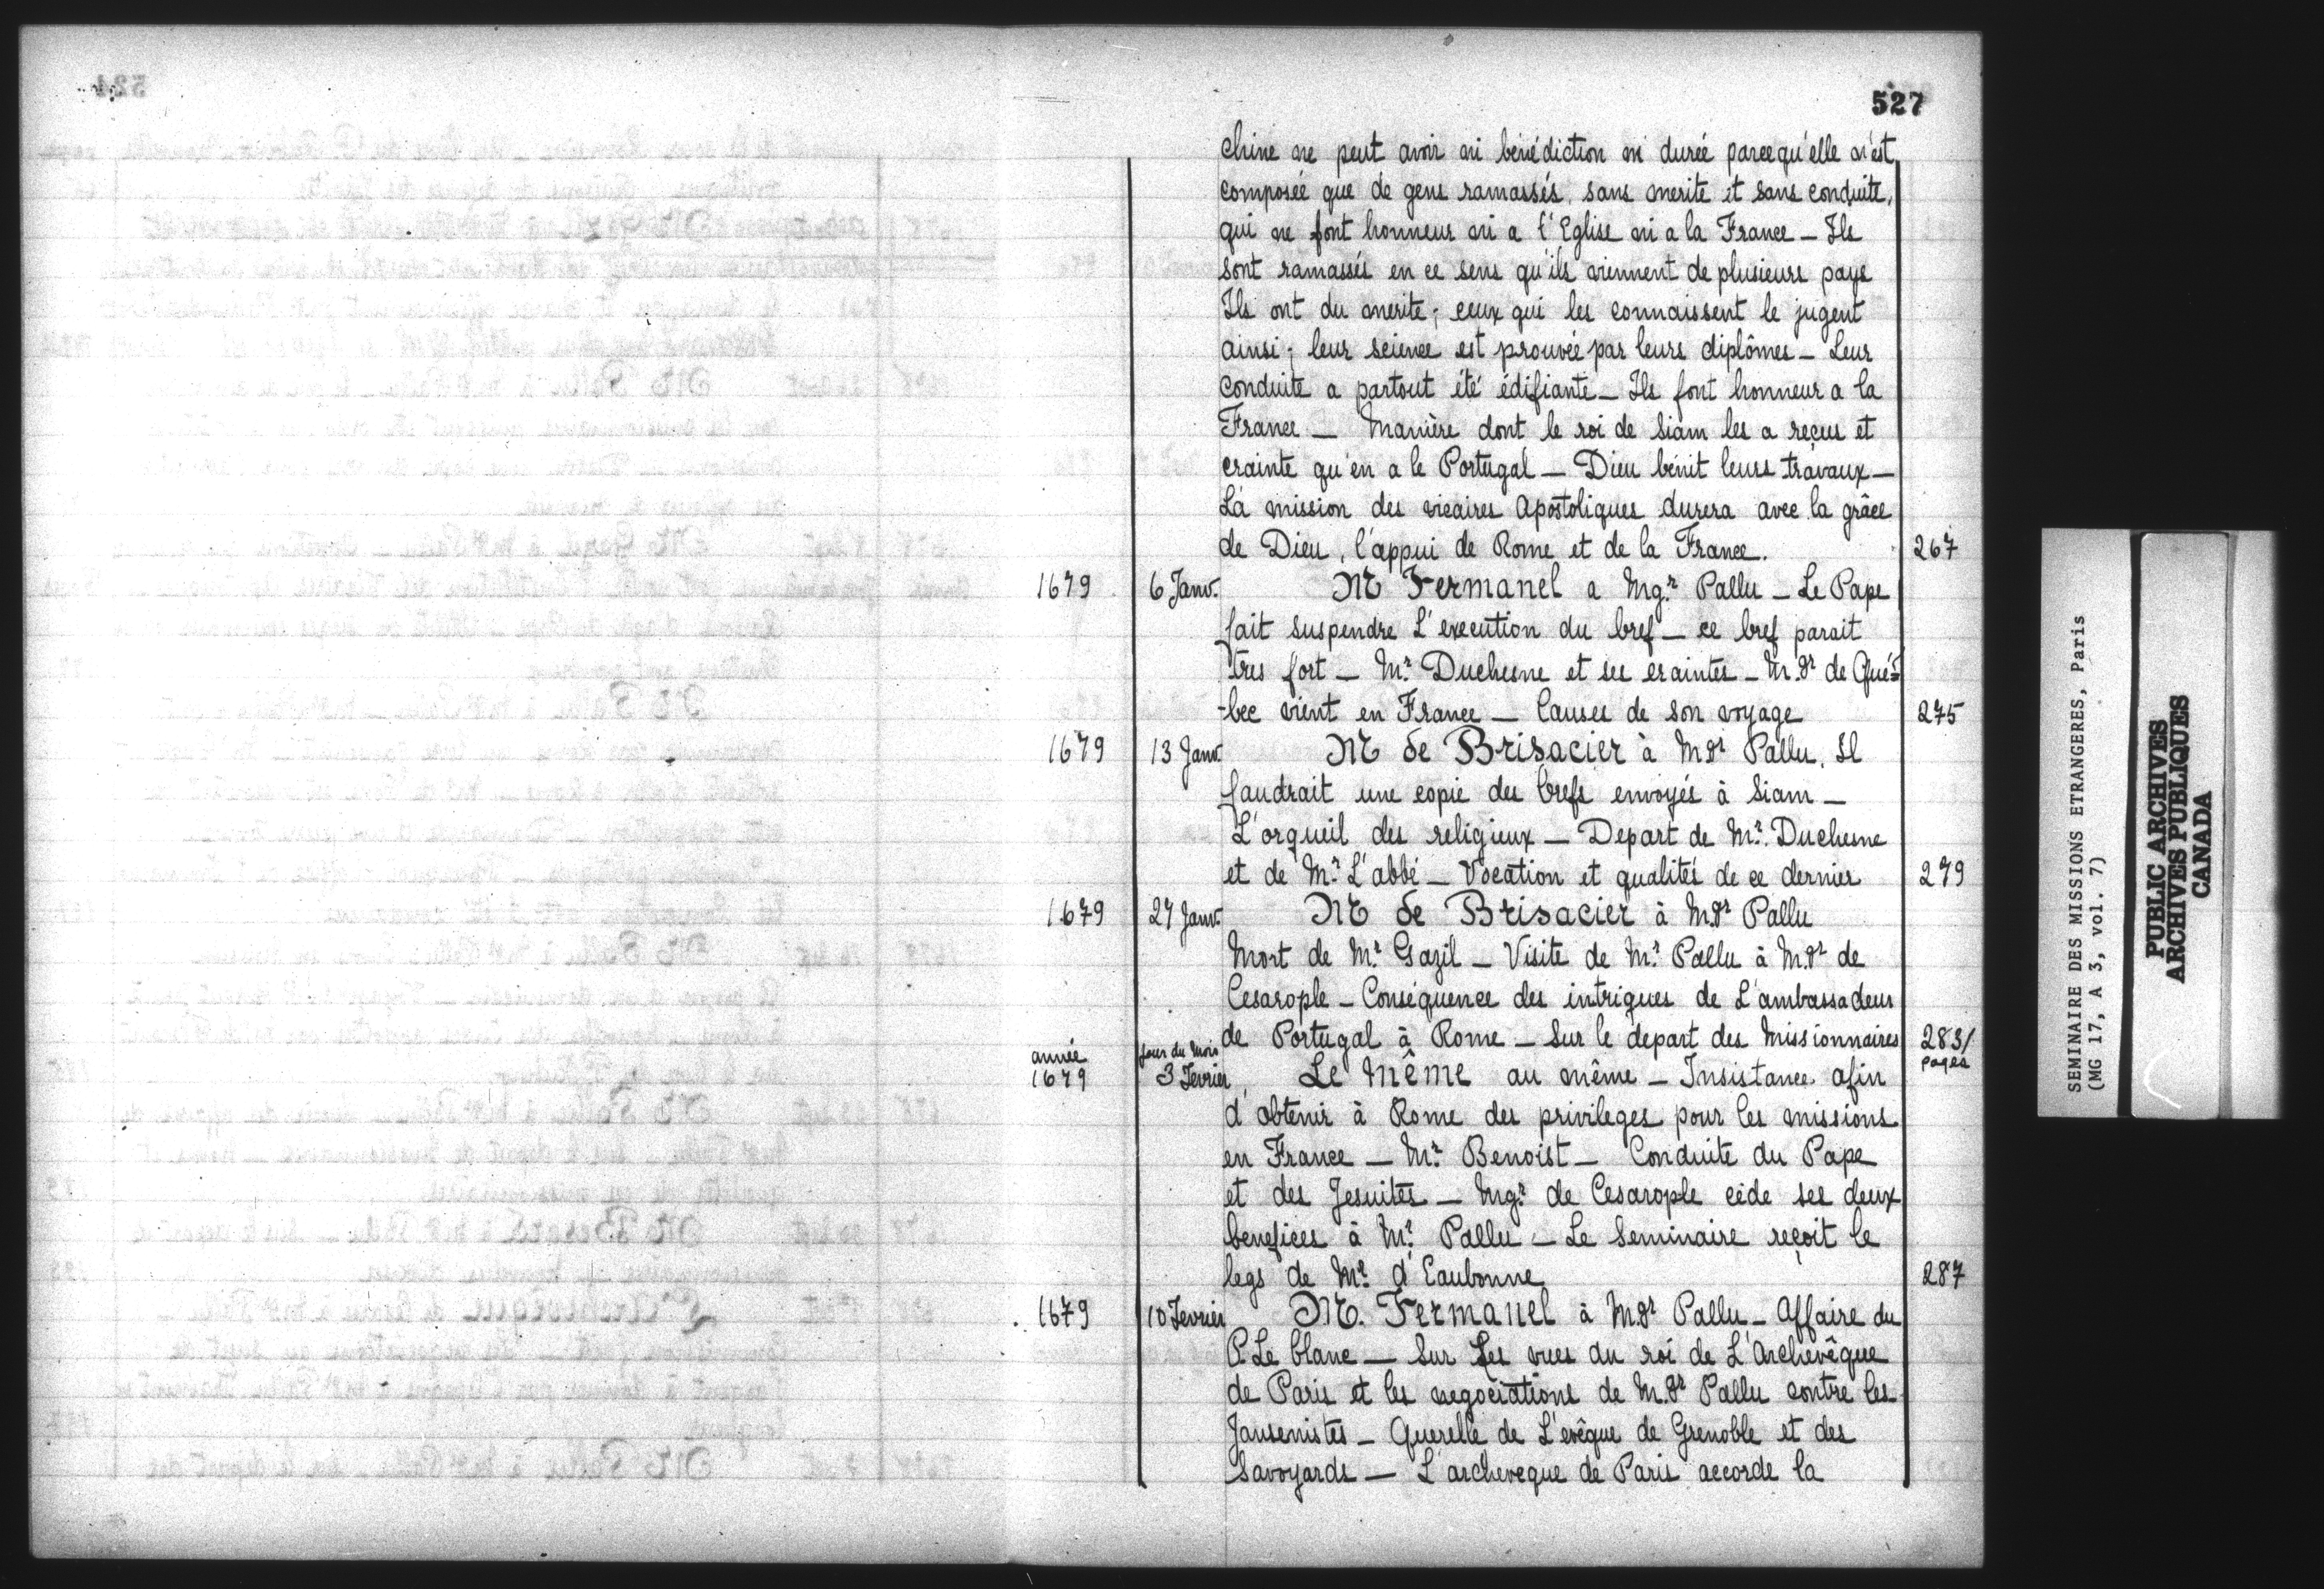 527
chine ne peut avoir ni bénédiction ni durée parcequ'elle n'est
composée que de gens ramassés, sans merite et sans conduite,
qui ne font honneur ni a l'Eglise ni a la France _ Ils
sont ramassés en ce sens qu'ils viennent de plusieurs pays
Ils ont du merite; ceux qui les connaissent le jugent
ainsi; leur science est prouvée par leurs diplômes _ Leur
conduite a partout été édifiante _ Ils font honneur a la
France _ Manière dont le roi de Siam les a reçus et
crainte qu'en a le Portugal _ Dieu bénit leurs travaux _
La mission des vicaires Apostoliques durera avec la grâce
de Dieu, l'appui de Rome et de la France. 267
1679 6 Janv. Mr Fermanel a Mgr. Pallu _ Le Pape
fait suspendre L'execution du bref _ ce bref parait
tres fort _ Mr. Duchesne et ses craintes _ M.gr de Qué=
-bec vient en France _ Causes de son voyage 275
1679 13 Janv. Mr de Brisacier à Mgr Pallu. Il
faudrait une copie des brefs envoyés à Siam _
L'orgueil des religieux _ Depart de Mr. Duchesne
et de Mr. L'abbé _ Vocation et qualités de ce dernier 279
1679 27 Janv. Mr de Brisacier à M.gr Pallu
Mort de Mr. Gazil _ Visite de Mr. Pallu à M.gr de
Cesarople _ Conséquence des intrigues de L'ambassadeur
de Portugal à Rome _ Sur le depart des Missionnaires 283/
année jour du mois pages
1679 3 Fevrier Le Même au même _ Insistance afin
d'obtenir à Rome des privileges pour les missions
en France _ Mr. Benoist _ Conduite du Pape
et des Jesuites _ Mgr. de Cesarople cède ses deux
benefices à Mr. Pallu _ Le Seminaire reçoit le
legs de Mr. d'Eaubonne 287
1679 10 Fevrier M. Fermanel à M.gr Pallu _ Affaire du
P. Le blanc _ Sur Les vues du roi de L'Archevêque
de Paris et les negociations de M.gr Pallu contre les
Jansenistes _ Querelle de L'evêque de Grenoble et des
Savoyards _ L'archeveque de Paris accorde la
SEMINAIRE DES MISSIONS ETRANGERES, Paris
(MG 17, A 3, vol. 7)
PUBLIC ARCHIVES
ARCHIVES PUBLIQUES
CANADA